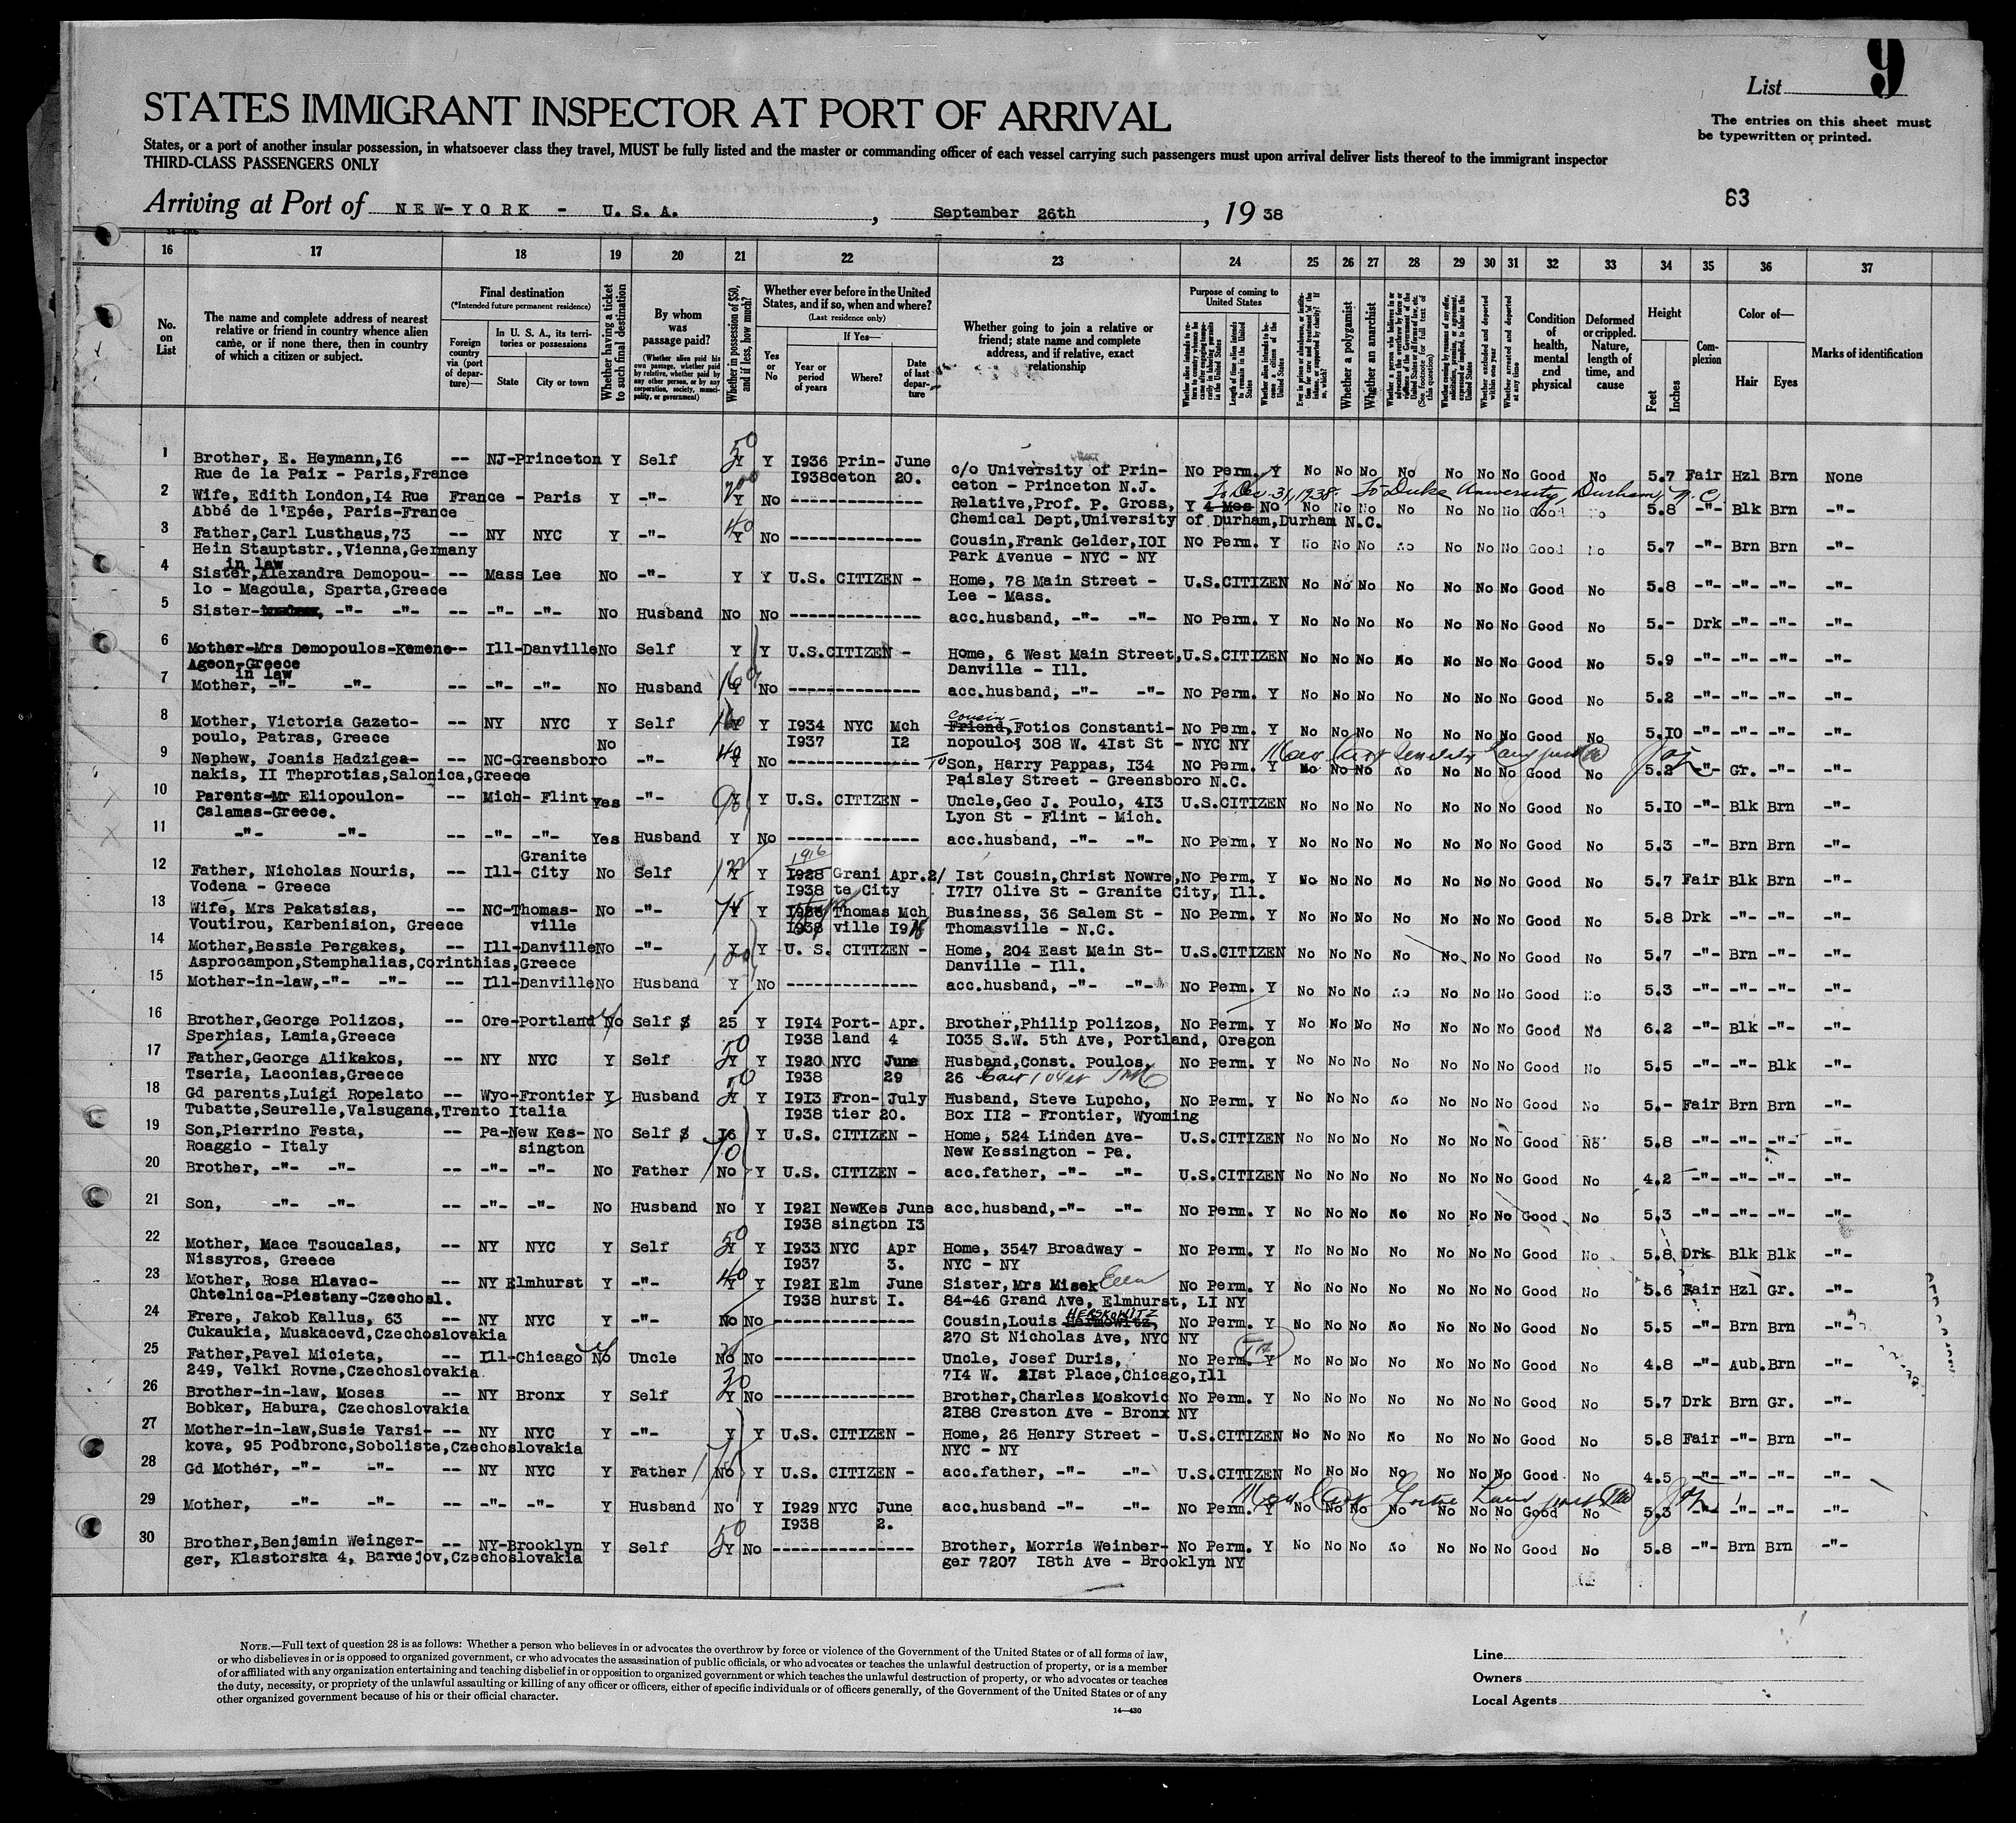 9
List
STATES IMMIGRANT INSPECTOR AT PORT OF ARRIVAL
The entries on this sheet must
be typewritten or printed.
States, or a port of another insular possession, in whatsoever class they travel, MUST be fully listed and the master or commanding officer of each vessel carrying such passengers must upon arrival deliver lists thereof to the immigrant inspector
THIRD-CLASS PASSENGERS ONLY
63
Arriving at Port of NEW-YORK - U.S.A. , September 26th , 19 38
16 17 18 19 20 21 22 23 24 25 26 27 28 29 30 31 32 33 34 35 36 37
No. on List
The name and complete address of nearest relative or friend in country whence alien came, or if none there, then in country of which a citizen or subject.
Final destination
(*Intended future permanent residence)
Foreign country via (port of departure)—
In U. S. A., its territories or possessions
State
City or town
Whether having a ticket to such final destination
By whom was passage paid?
(Whether alien paid his own passage, whether paid by relative, whether paid by any other person, or by any corporation, society, municipality, or government)
Whether in possession of $50, and if less, how much?
Whether ever before in the United States, and if so, when and where?
(Last residence only)
Yes or No
If Yes—
Year or period of years
Where?
Date of last departure
Whether going to join a relative or friend; state name and complete address, and if relative, exact relationship
Purpose of coming to United States
Length of time alien intends to remain in the United States
Whether alien intends to become a citizen of the United States
Whether a polygamist
Whether an anarchist
(See footnote for full text of this question)
Whether excluded and deported within one year
Whether arrested and deported at any time
Condition of health, mental and physical
Deformed or crippled. Nature, length of time, and cause
Height
Feet
Inches
Complexion
Color of—
Hair
Eyes
Marks of identification
1 Brother, E. Heymann,16 -- NJ-Princeton Y Self 50 Y Y 1936 Prin- June c/o University of Prin- No Perm. Y No No No No No No No Good No 5.7 Fair Hzl Brn None
Rue de la Paix - Paris,France 1938 ceton 20. ceton - Princeton N.J.
2 Wife, Edith London,14 Rue France - Paris Y -"- 200 Y No --------------- Relative,Prof. P. Gross, Y 4 Mos No No No No No No No No Good No 5.8 -"- Blk Brn -"-
To Dec. 31, 1938. To Duke University, Durham, N.C.
Abbé de l'Epée, Paris-France Chemical Dept,University of Durham,Durham N.C.
3 Father,Carl Lusthaus,73 -- NY NYC Y -"- 40 Y No --------------- Cousin,Frank Gelder,101 No Perm. Y No No No No No No No Good No 5.7 -"- Brn Brn -"-
Hein Stauptstr.,Vienna,Germany Park Avenue - NYC - NY
in law
4 Sister,Alexandra Demopou- -- Mass Lee No -"- Y Y U.S. CITIZEN - Home, 78 Main Street - U.S.CITIZEN No No No No No No No Good No 5.8 -"- -"- -"- -"-
lo - Magoula, Sparta,Greece Lee - Mass.
5 Sister- -"- -"- -- -"- -"- No Husband No No --------------- acc.husband, -"- -"- No Perm. Y No No No No No No No Good No 5.- Drk -"- -"- -"-
6 Mother-Mrs Demopoulos-Kemene -- Ill-Danville No Self Y Y U.S.CITIZEN - Home, 6 West Main Street, U.S.CITIZEN No No No No No No No Good No 5.9 -"- -"- -"- -"-
Ageon-Greece Danville - Ill.
in law
7 Mother, -"- -"- -- -"- -"- No Husband 160 Y No --------------- acc.husband, -"- -"- No Perm. Y No No No No No No No Good No 5.2 -"- -"- -"- -"-
8 Mother, Victoria Gazeto- -- NY NYC Y Self Y Y 1934 NYC Mch Friend, Cousin- Fotios Constanti- No Perm. Y No No No No No No No Good No 5.10 -"- -"- -"- -"-
poulo, Patras, Greece 1937 12 nopoulos 308 W. 41st St - NYC NY
9 Nephew, Joanis Hadzigea- -- NC-Greensboro No -"- 40 Y No --------------- To Son, Harry Pappas, 134 No Perm. Y No No No No No No No Good No 5.2 -"- Gr. -"- -"-
nakis, 11 Theprotias,Salonica,Greece Paisley Street - Greensboro N.C.
10 Parents-Mr Eliopoulon- -- Mich- Flint Yes -"- Y Y U.S. CITIZEN - Uncle,Geo J. Poulo, 413 U.S.CITIZEN No No No No No No No Good No 5.10 -"- Blk Brn -"-
Calamas-Greece. Lyon St - Flint - Mich.
11 -"- -"- -- -"- -"- Yes Husband Y No --------------- acc.husband, -"- -"- No Perm. Y No No No No No No No Good No 5.3 -"- Brn Brn -"-
12 Father, Nicholas Nouris, -- Ill- Granite City No Self Y Y 1916 1928 Grani Apr.2/ 1st Cousin,Christ Nowre, No Perm. Y No No No No No No No Good No 5.7 Fair Blk Brn -"-
Vodena - Greece 1938 te City 1717 Olive St - Granite City, Ill.
13 Wife, Mrs Pakatsias, -- NC-Thomas- No -"- 75 Y Y Thomas Mch Business, 36 Salem St - No Perm. Y No No No No No No No Good No 5.8 Drk -"- -"- -"-
Voutirou, Karbenision, Greece ville 1938 ville Thomasville - N.C.
14 Mother,Bessie Pergakes, -- Ill-Danville No -"- Y Y U. S. CITIZEN - Home, 204 East Main St- U.S.CITIZEN No No No No No No No Good No 5.7 -"- Brn -"- -"-
Asprocampon,Stemphalias,Corinthias,Greece Danville - Ill.
15 Mother-in-law,-"- -"- -- Ill-Danville No Husband Y No --------------- acc.husband, -"- -"- No Perm. Y No No No No No No No Good No 5.3 -"- -"- -"- -"-
16 Brother,George Polizos, -- Ore-Portland No Self $ 25 Y 1914 Port- Apr. Brother,Philip Polizos, No Perm. Y No No No No No No No Good No 6.2 -"- Blk -"- -"-
Sperhias, Lamia,Greece 1938 land 4 1035 S.W. 5th Ave, Portland, Oregon
17 Father,George Alikakos, -- NY NYC Y Self 50 Y Y 1920 NYC June Husband,Const. Poulos, No Perm. Y No No No No No No No Good No 5.5 -"- -"- Blk -"-
Tseria, Laconias,Greece 1938 29 26 East 104 st
18 Gd parents,Luigi Ropelato -- Wyo-Frontier Y Husband 50 Y Y 1913 Fron- July Husband, Steve Lupcho, No Perm. Y No No No No No No No Good No 5.- Fair Brn Brn -"-
Tubatte,Seurelle,Valsugana,Trento Italia 1938 tier 20. Box 112 - Frontier, Wyoming
19 Son,Pierrino Festa, -- Pa-New Kes- No Self $ 16 Y U.S. CITIZEN - Home, 524 Linden Ave- U.S.CITIZEN No No No No No No No Good No 5.8 -"- -"- -"- -"-
Roaggio - Italy sington New Kessington - Pa.
20 Brother, -"- -"- -- -"- -"- No Father No Y U.S. CITIZEN - acc.father, -"- -"- U.S.CITIZEN No No No No No No No Good No 4.2 -"- -"- -"- -"-
21 Son, -"- -"- -- -"- -"- No Husband No Y 1921 NewKes June acc.husband,-"- -"- No Perm. Y No No No No No No No Good No 5.3 -"- -"- -"- -"-
1938 sington 13
22 Mother, Mace Tsoucalas, -- NY NYC Y Self 50 Y Y 1933 NYC Apr Home, 3547 Broadway - No Perm. Y No No No No No No No Good No 5.8 Drk Blk Blk -"-
Nissyros, Greece 1937 3. NYC - NY
23 Mother, Rosa Hlavac- -- NY Elmhurst Y -"- 40 Y Y 1921 Elm June Sister, Mrs Misek Ellen No Perm. Y No No No No No No No Good No 5.6 Fair Hzl Gr. -"-
Chtelnica-Piestany-Czechosl. 1938 hurst 1. 84-46 Grand Ave, Elmhurst, LI NY
24 Frere, Jakob Kallus, 63 -- NY NYC Y -"- No No --------------- Cousin,Louis HERSKOWITZ No Perm. Y No No No No No No No Good No 5.5 -"- Brn Brn -"-
Cukaukia, Muskacevd,Czechoslovakia 270 St Nicholas Ave, NYC NY
25 Father,Pavel Micieta, -- Ill-Chicago No Uncle No No --------------- Uncle, Josef Duris, No Perm. Y No No No No No No No Good No 4.8 -"- Aub. Brn -"-
249, Velki Rovne,Czechoslovakia 714 W. 21st Place,Chicago,Ill
26 Brother-in-law, Moses -- NY Bronx Y Self 30 Y No --------------- Brother,Charles Moskovic No Perm. Y No No No No No No No Good No 5.7 Drk Brn Gr. -"-
Bobker, Habura, Czechoslovakia 2188 Creston Ave - Bronx NY
27 Mother-in-law,Susie Varsi- -- NY NYC Y -"- Y Y U.S. CITIZEN - Home, 26 Henry Street - U.S.CITIZEN No No No No No No No Good No 5.8 Fair -"- Brn -"-
kova, 95 Podbronc,Soboliste,Czechoslovakia NYC - NY
28 Gd Mother, -"- -"- -- NY NYC Y Father No Y U.S. CITIZEN - acc.father, -"- -"- U.S.CITIZEN No No No No No No No Good No 4.5 -"- -"- -"- -"-
29 Mother, -"- -"- -- -"- -"- Y Husband No Y 1929 NYC June acc.husband -"- -"- No Perm. Y No No No No No No No Good No 5.3 -"- -"- -"- -"-
1938 2.
30 Brother,Benjamin Weinger- -- NY-Brooklyn Y Self 50 Y No --------------- Brother, Morris Weinber- No Perm. Y No No No No No No No Good No 5.8 -"- Brn Brn -"-
ger, Klastorska 4, Bardejov,Czechoslovakia ger 7207 18th Ave - Brooklyn NY
NOTE.—Full text of question 28 is as follows: Whether a person who believes in or advocates the overthrow by force or violence of the Government of the United States or of all forms of law,
or who disbelieves in or is opposed to organized government, or who advocates the assassination of public officials, or who advocates or teaches the unlawful destruction of property, or is a member
of or affiliated with any organization entertaining and teaching disbelief in or opposition to organized government or which teaches the unlawful destruction of property, or who advocates or teaches
the duty, necessity, or propriety of the unlawful assaulting or killing of any officer or officers, either of specific individuals or of officers generally, of the Government of the United States or of any
other organized government because of his or their official character.
14—430
Line
Owners
Local Agents